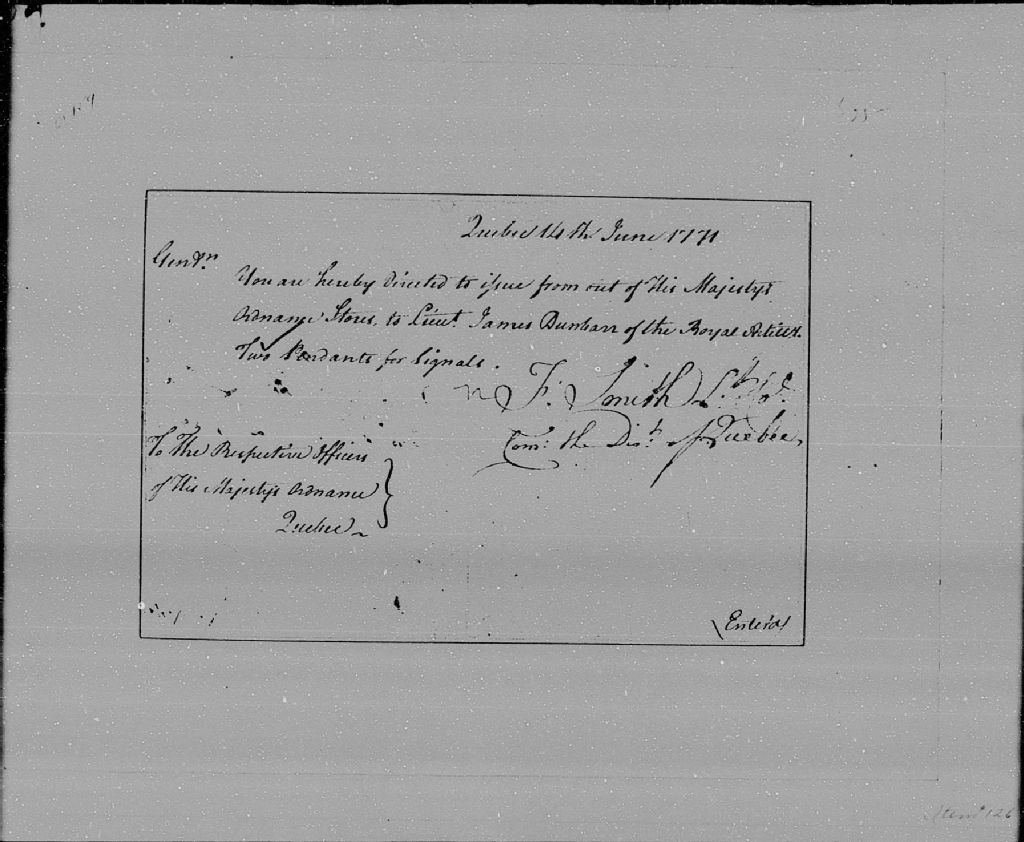 Quebec 14th June 1771
Gentn.
You are hereby directed to issue from out of His Majestys
Ordnance Stores, to Lieut. James Dunbarr of the Royal Artillt.
Two Pendants for Signals.
F. Smith Lt. Col.
Com: the Dist. of Quebec,
To The Respective Officers
of His Majestys Ordnance
Quebec
Enter'd
Item 126